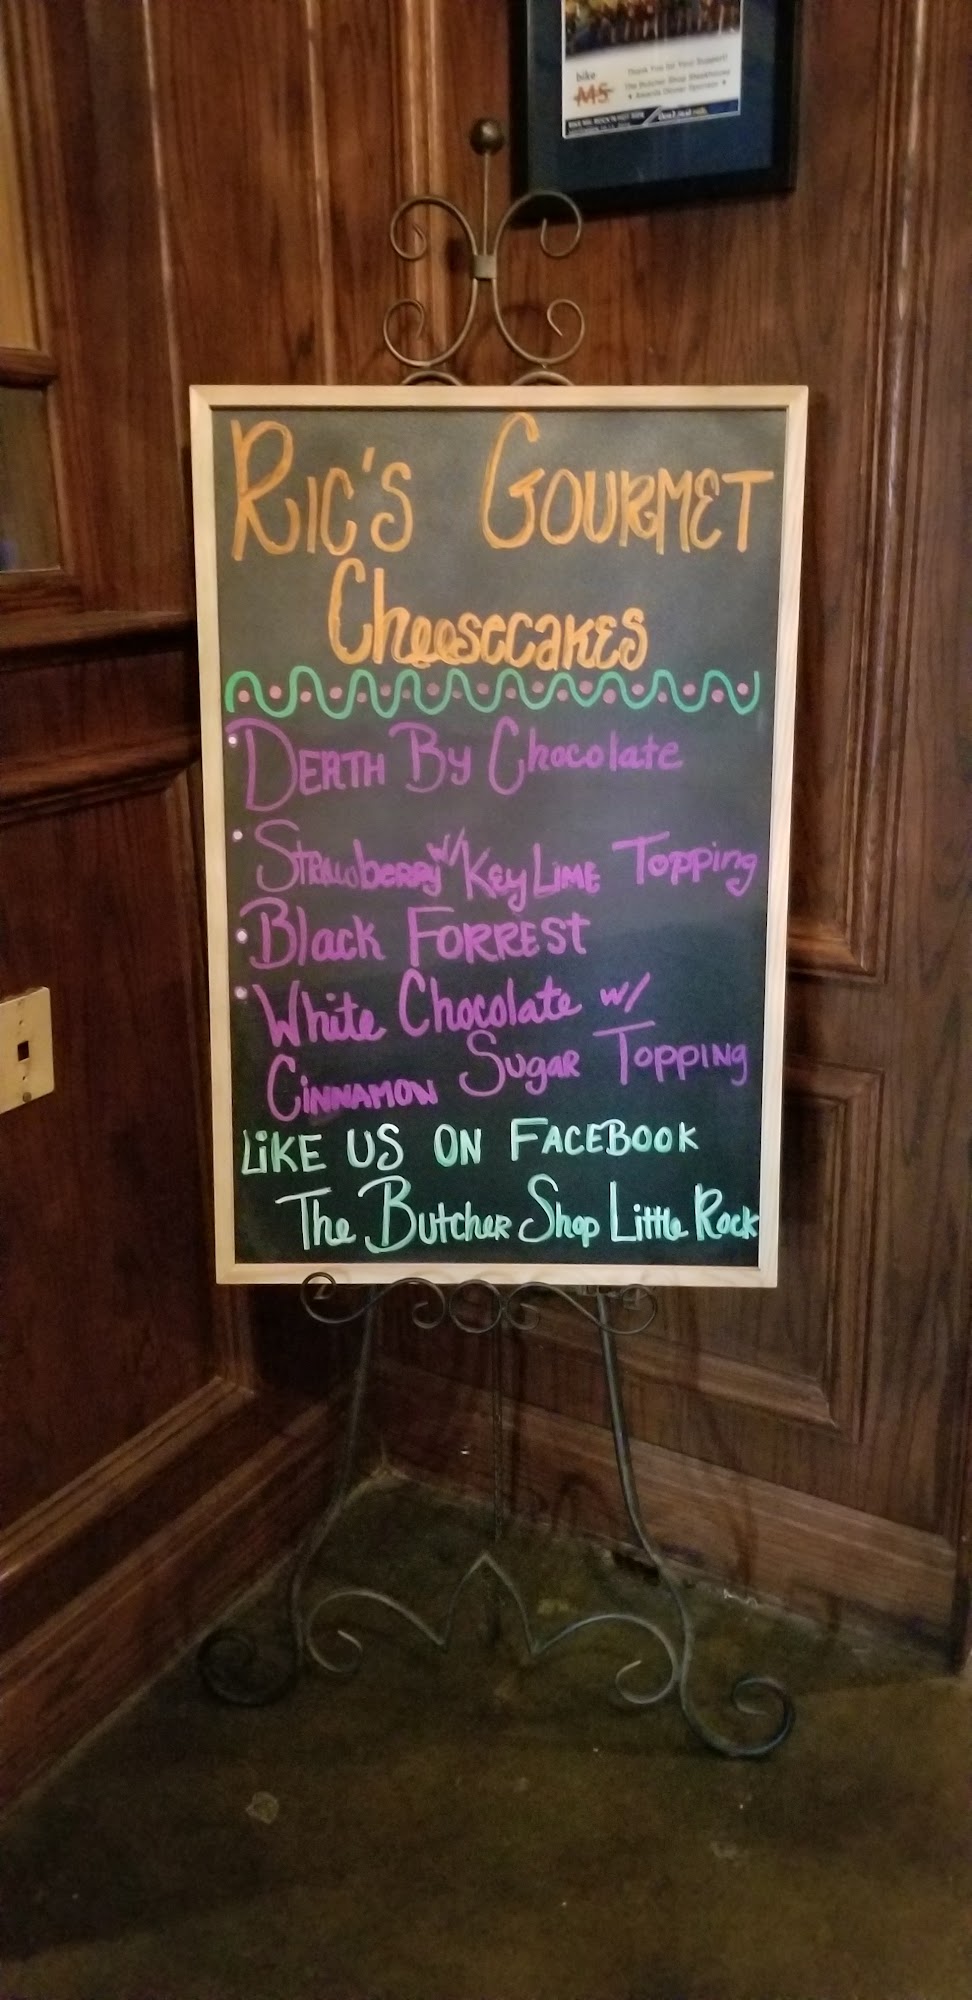 bike
MS
Thank You for Your Support!
The Butcher Shop Steakhouse
• Awards Dinner Sponsor •
Ric's Gourmet
Cheesecakes
• Death By Chocolate
• Strawberry w/ Key Lime Topping
• Black Forrest
• White Chocolate w/
Cinnamon Sugar Topping
Like us on Facebook
The Butcher Shop Little Rock